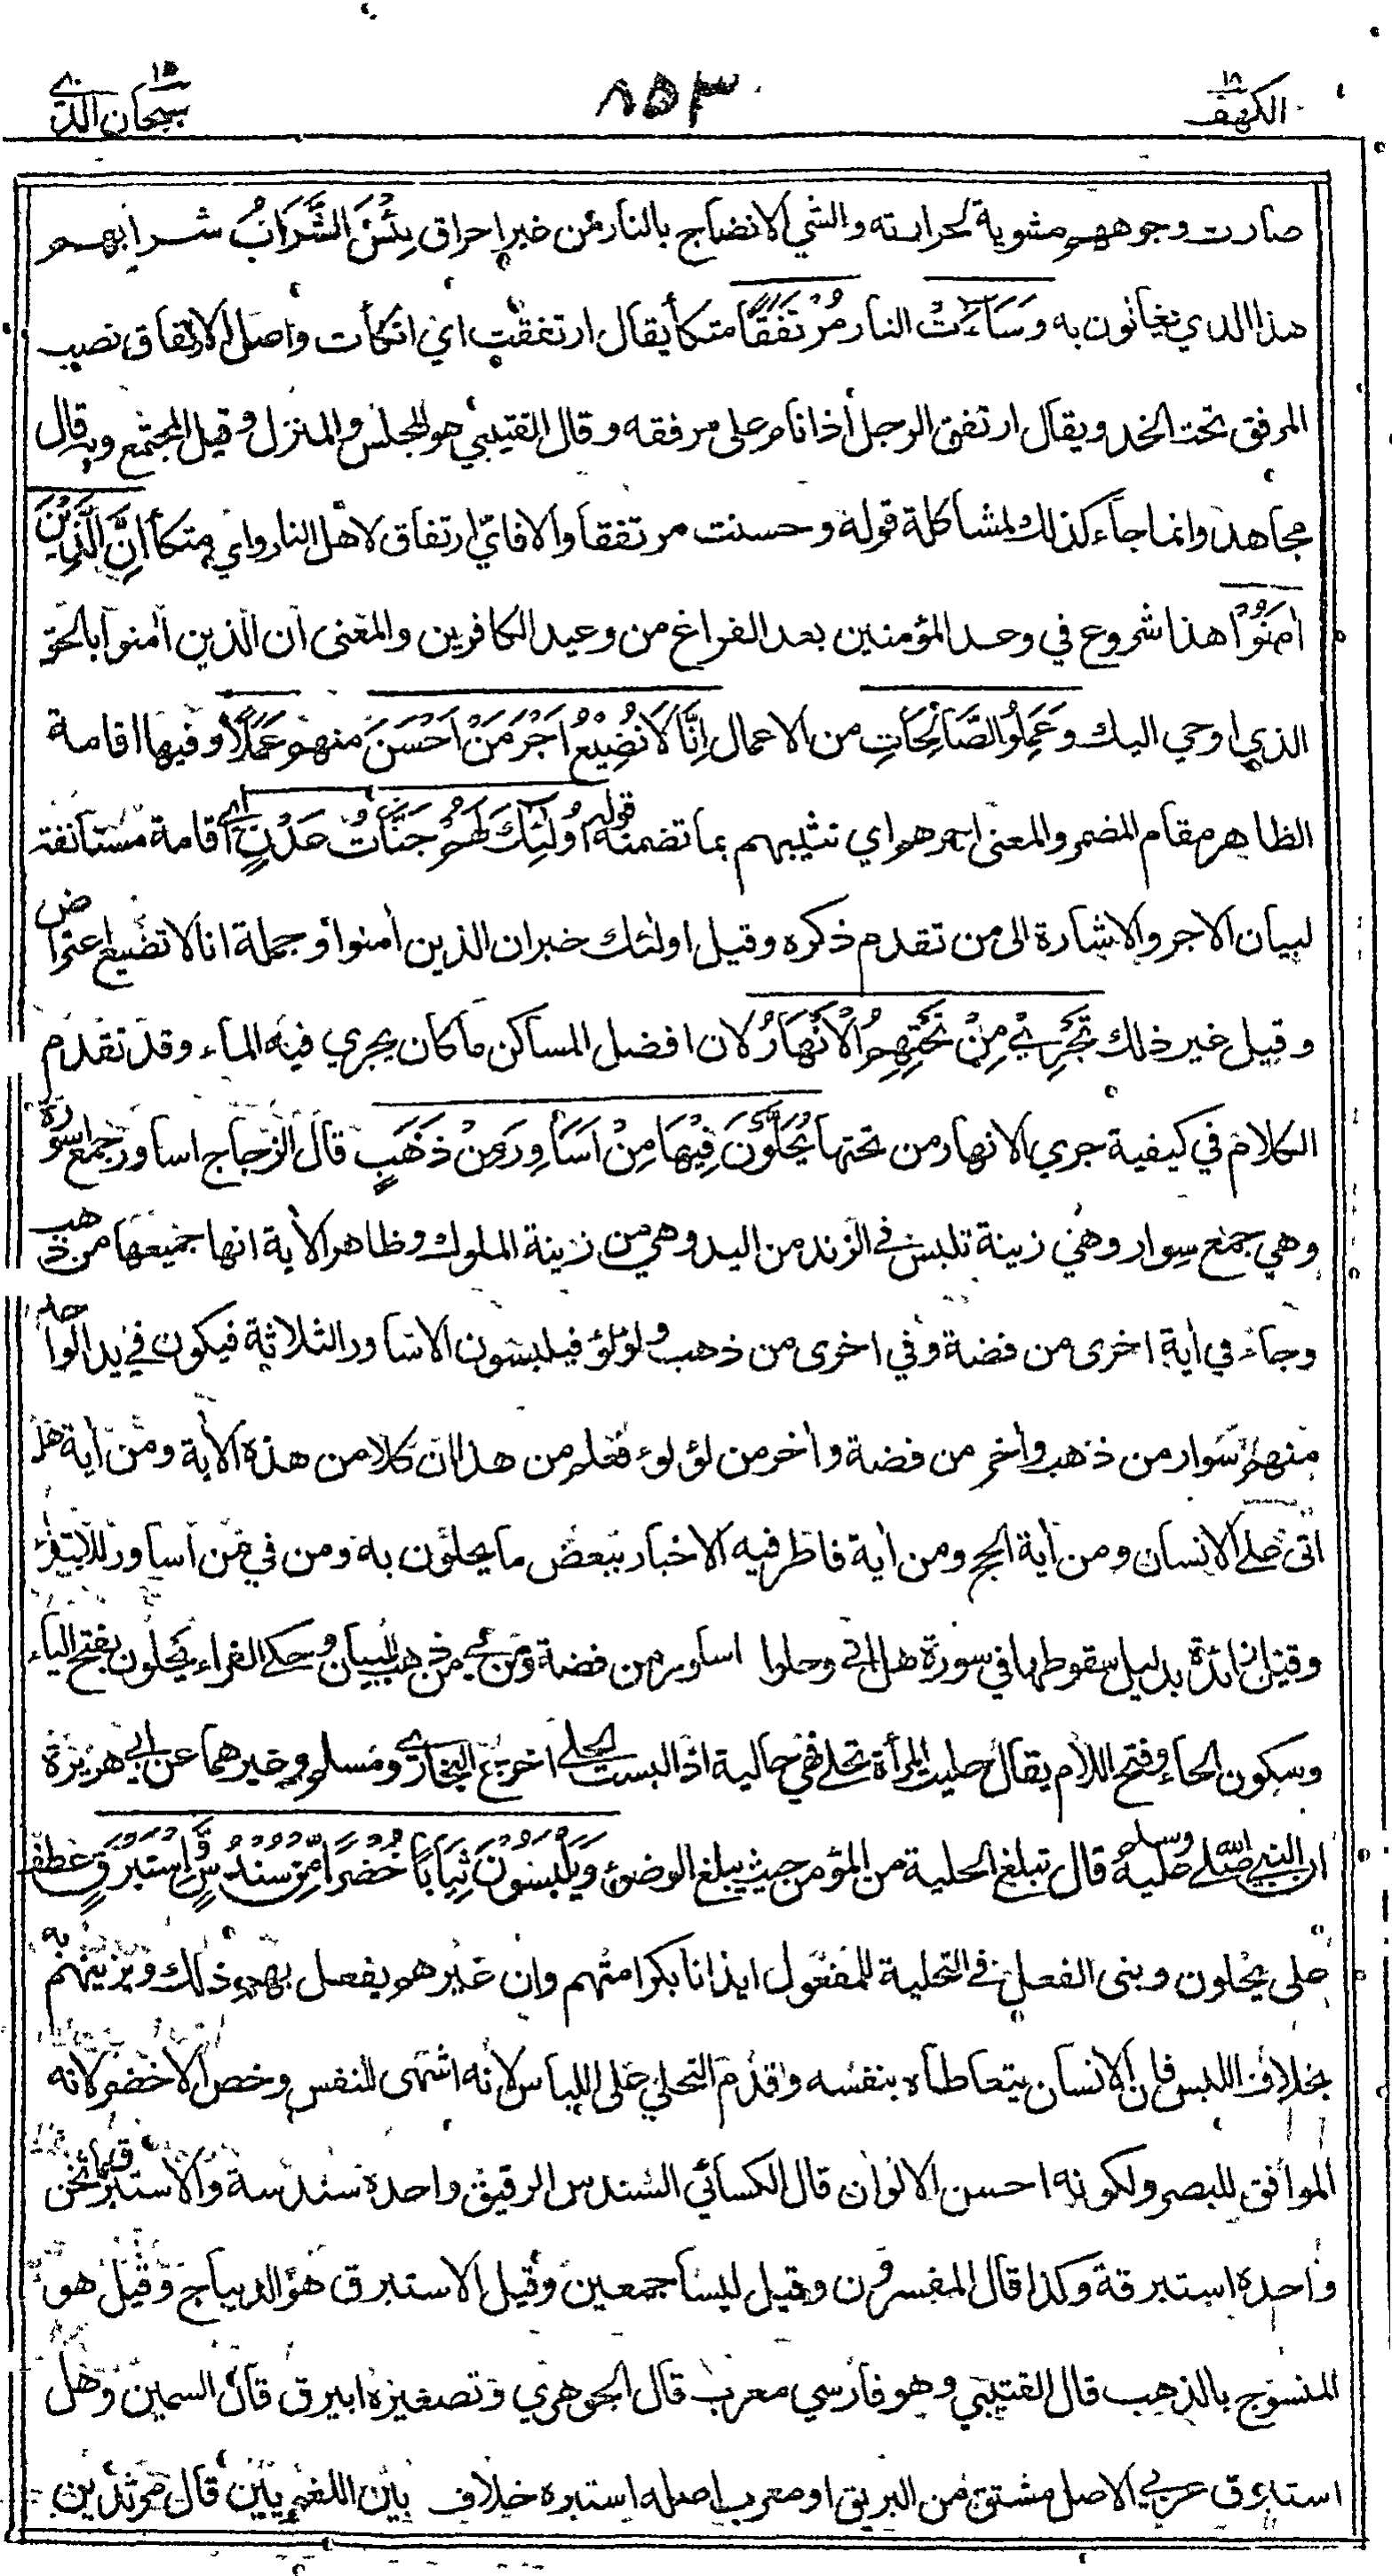 الكهف ١٨
٨٥٣
سبحان الذي ١٥
صارت وجوههم مشوية لحرارته والشي الانضاج بالنار من غير احراق بِئْسَ الشَّرَابُ شرابهم
هذا الذي يغاثون به وَسَاءَتْ النار مُرْتَفَقًا متكأ يقال ارتفقت اي اتكأت واصل الارتفاق نصب
المرفق تحت الخد ويقال ارتفق الرجل اذا نام على مرفقه وقال القتيبي هو المجلس والمنزل وقيل المجتمع وبه قال
مجاهد وانما جاء كذلك لمشاكلة قوله وحسنت مرتفقا والا فاي ارتفاق لاهل النار واي متكأ اِنَّ الَّذِيْنَ
اٰمَنُوْا هذا شروع في وعد المؤمنين بعد الفراغ من وعيد الكافرين والمعنى ان الذين اٰمنوا بالحق
الذي اوحي اليك وَعَمِلُوا الصَّالِحَاتِ من الاعمال اِنَّا لَا نُضِيْعُ اَجْرَ مَنْ اَحْسَنَ منهم عَمَلًا وفيها اقامة
الظاهر مقام المضمر والمعنى اجرهم اي نثيبهم بما تضمنه قوله اُولٰئِكَ لَهُمْ جَنَّاتُ عَدْنٍ اي اقامة مستانفة
لبيان الاجر والاشارة الى من تقدم ذكره وقيل اولئك خبر ان الذين اٰمنوا وجملة انا لا نضيع اعتراض
وقيل غير ذلك تَجْرِيْ مِنْ تَحْتِهِمُ الْاَنْهَارُ لان افضل المساكن ما كان يجري فيه الماء وقد تقدم
الكلام في كيفية جري الانهار من تحتها يُحَلَّوْنَ فِيْهَا مِنْ اَسَاوِرَ مِنْ ذَهَبٍ قال الزجاج اساور جمع اسورة
وهي جمع سوار وهي زينة تلبس في الزند من اليد وهي من زينة الملوك وظاهر الاٰية انها جميعها من ذهب
وجاء في اٰية اخرى من فضة وفي اخرى من ذهب ولؤلؤ فيلبسون الاساور الثلاثة فيكون في يد الواحد
منهم سوار من ذهب واٰخر من فضة واٰخر من لؤلوء فعلم من هذا ان كلا من هذه الاٰية ومن اٰية هل
اتى على الانسان ومن اٰية الحج ومن اٰية فاطر فيه الاخبار ببعض ما يحلون به ومن في من اساور للابتداء
وقيل زائدة بدليل سقوطها في سورة هل اتى وحلوا اساور من فضة ومن في من ذهب للبيان وحكى الفراء يحلون بفتح الياء
وسكون الحاء وفتح اللام يقال حليت المرأة تحلى فهي حالية اذا لبست الحلي اخرج البخاري ومسلم وغيرهما عن ابي هريرة
ان النبي صلى الله عليه وسلم قال تبلغ الحلية من المؤمن حيث يبلغ الوضوء وَيَلْبَسُوْنَ ثِيَابًا خُضْرًا مِّنْ سُنْدُسٍ وَّاِسْتَبْرَقٍ عطف
على يحلون وبنى الفعل في التحلية للمفعول ايذانا بكرامتهم وان غيرهم يفعل بهم ذلك ويزينهم به
بخلاف اللبس فان الانسان يتعاطاه بنفسه وقدم التحلي على اللباس لانه اشهى للنفس وخص الاخضر لانه
الموافق للبصر ولكونه احسن الالوان قال الكسائي السندس الرقيق واحده سندسة والاستبرق ما ثخن
واحده استبرقة وكذا قال المفسرون وقيل ليسا جمعين وقيل الاستبرق هو الديباج وقيل هو
المنسوج بالذهب قال القتيبي وهو فارسي معرب قال الجوهري وتصغيره ابيرق قال السمين وهل
استبرق عربي الاصل مشتق من البريق او معرب اصله استبره خلاف بين اللغويين قال مرثد بن